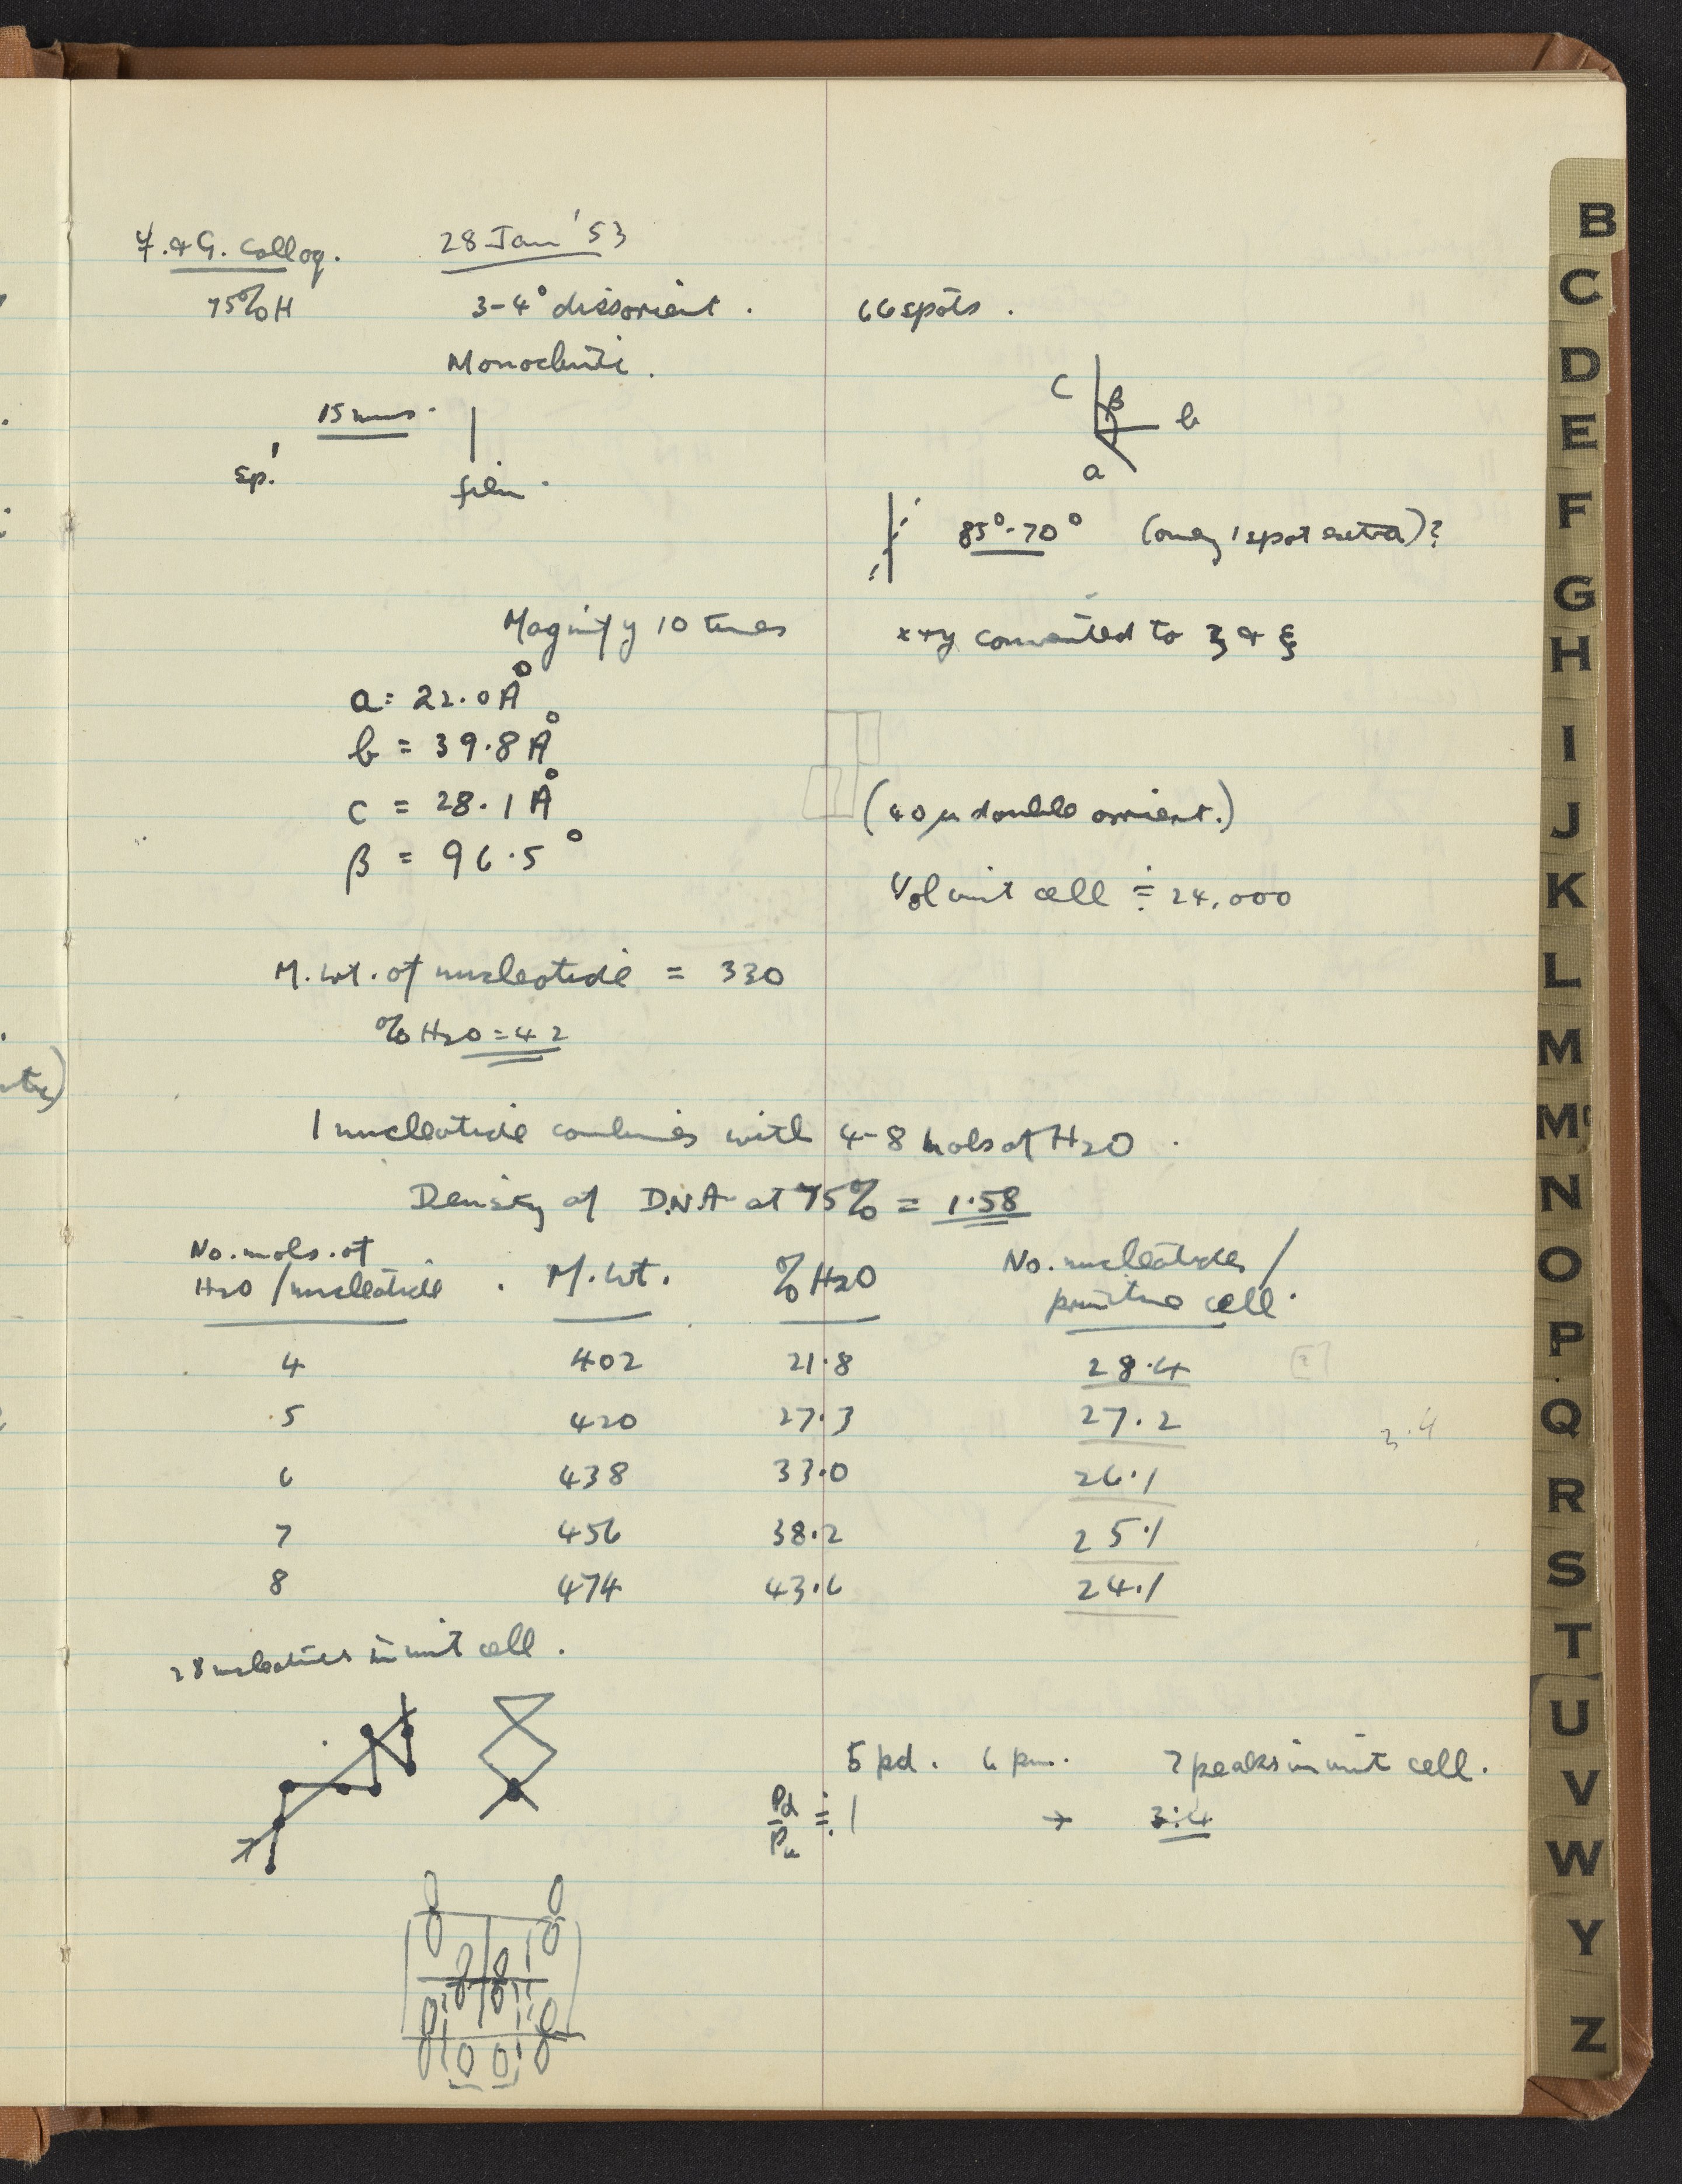 & G. Colloq. 28 Jan '53
75% H 3-4° dissorient. 66 spots.
Monoclinic.
15 mms.
c β b
a
sp. film.
85°-70° (only 1 spot extra)?
Magnify 10 times x + y converted to ξ & ξ
a = 22.0 Å
b = 39.8 Å
c = 28.1 Å (40 μ double orrient.)
β = 96.5° Vol unit cell ≑ 24,000
M. Wt. of nucleotide = 330
% H2O = 42
1 nucleotide combines with 4-8 mols of H2O.
Density of D.N.A at 75% = 1.58
No. mols. of H2O / nucleotide. M. Wt. % H2O No. nucleotides / primitive cell.
4 402 21.8 28.4
5 420 27.3 27.2 3.4
6 438 33.0 26.1
7 456 38.2 25.1
8 474 43.6 24.1
28 nucleotides in unit cell.
5 pd. 6 pu. 7 peaks in unit cell.
Pd/Pu ≑ 1 → 3:4
B
C
D
E
F
G
H
I
J
K
L
M
Mc
N
O
P
Q
R
S
T
U
V
W
Y
Z